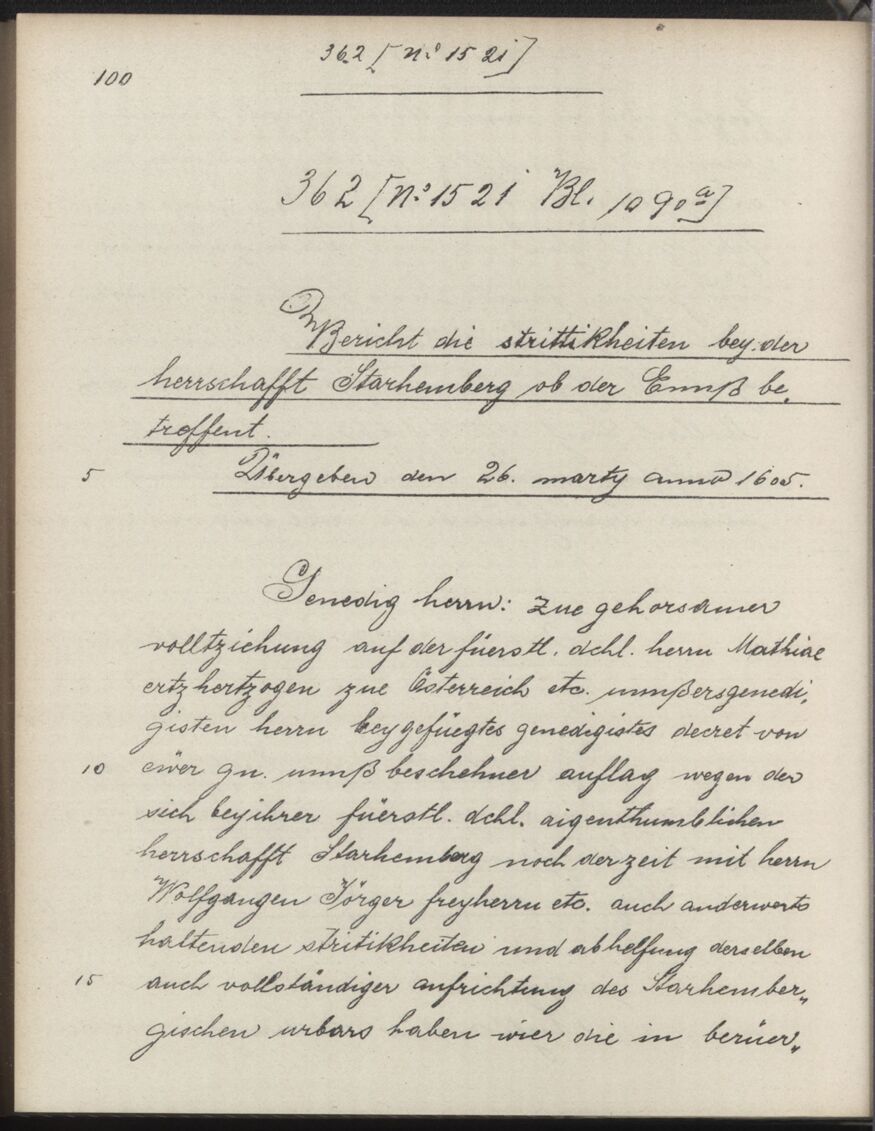 362 [No 1521]
100
362 [No 1521 Bl. 1090a]
Bericht die strittikheiten bey der
herrschafft Starhemberg ob der Ennß be„
treffent.
5 Übergeben den 26. marty anno 1605.
Genedig herrn: zue gehorsamer
volltziehung auf der fürstl. dchl. herrn Mathiae
ertzhertzogen zue Österreich etc. unnßersgenedi„
gisten herrn beygefüegtes genedigistes decret von
10 ewer gn. unnß beschehner auflag wegen der
sich bey ihrer füerstl. dchl. aigenthumblichen
herrschafft Starhemberg noch der zeit mit herrn
Wolfgangen Jörger freyherrn etc. auch anderwerts
haltenden stritikheiten und abhelfung derselben
15 auch vollständiger aufrichtung des Starhember„
gischen urbars haben wier die in berüer„